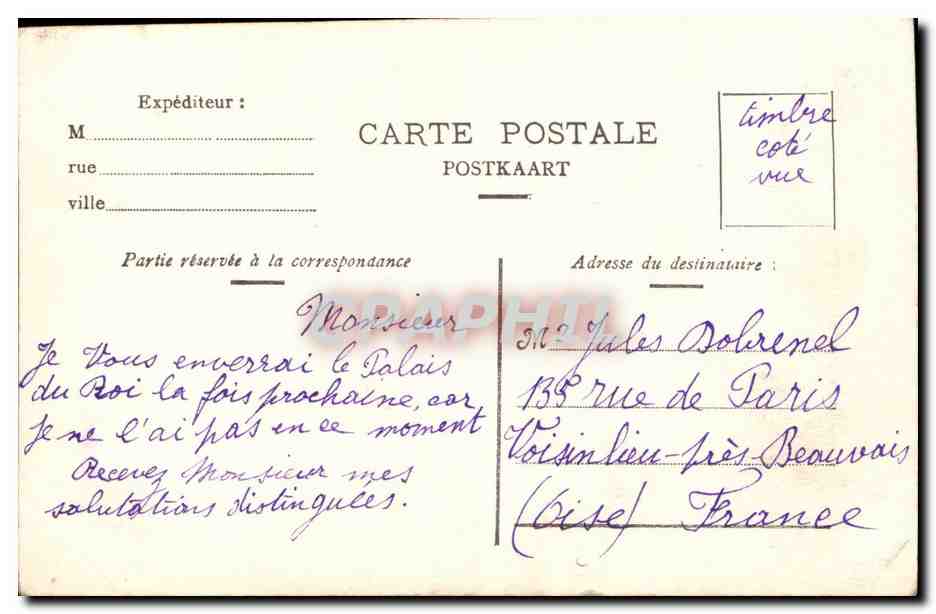 Expéditeur :
M
rue
ville
CARTE POSTALE
POSTKAART
timbre
coté
vue
Partie réservée à la correspondance
Monsieur
Je Vous enverrai le Palais
du Roi la fois prochaine, car
je ne l'ai pas en ce moment
Recevez Monsieur mes
salutations distinguées.
Adresse du destinataire :
Mr Jules Dobrenel
135 rue de Paris
Voisinlieu-près-Beauvais
(Oise) France
CPAPHIL